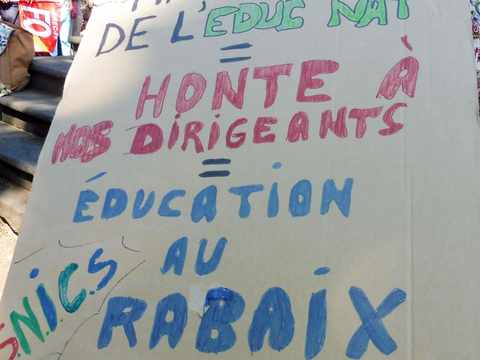 DE L'ÉDUC NAT
=
HONTE À
NOS DIRIGEANTS
=
ÉDUCATION
AU
RABAIX
S.N.I.C.S
FO